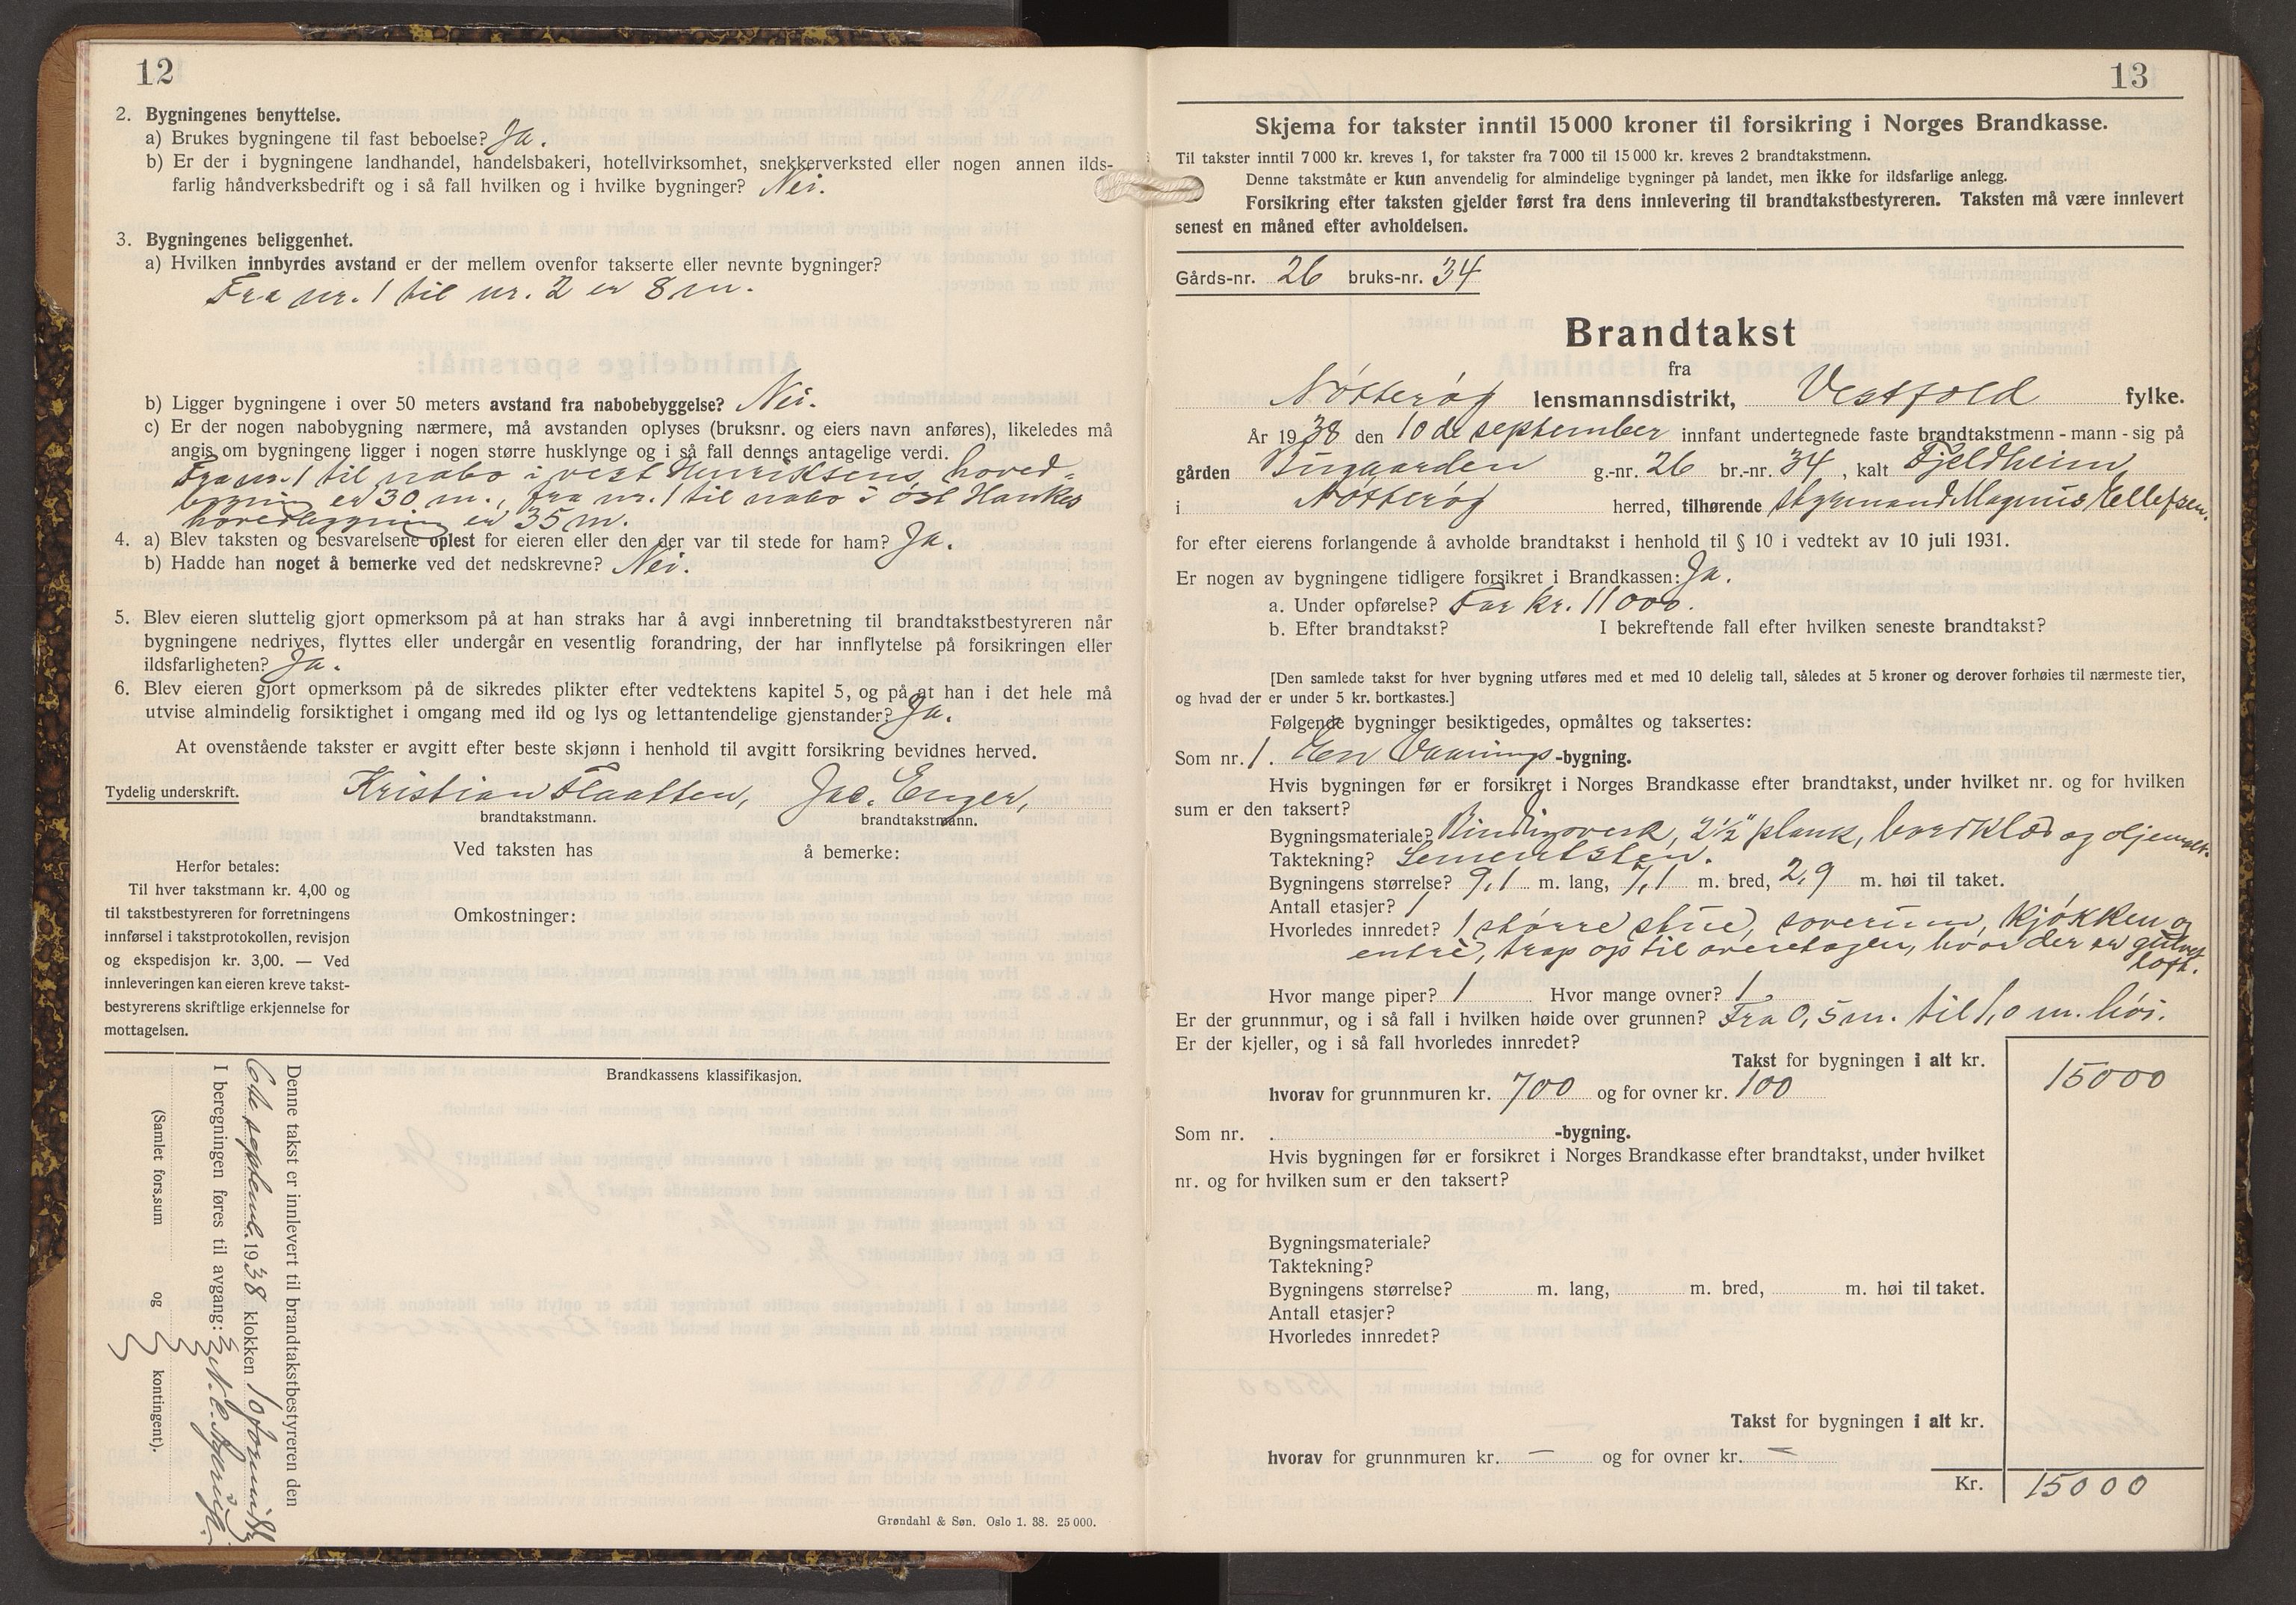 12
2. Bygningenes benyttelse.
a) Brukes bygningene til fast beboelse? Ja.
b) Er der i bygningene landhandel, handelsbakeri, hotellvirksomhet, snekkerverksted eller nogen annen ilds-
farlig håndverksbedrift og i så fall hvilken og i hvilke bygninger? Nei.
3. Bygningenes beliggenhet.
a) Hvilken innbyrdes avstand er der mellem ovenfor takserte eller nevnte bygninger?
Fra nr. 1 til nr. 2 er 8 m.
b) Ligger bygningene i over 50 meters avstand fra nabobebyggelse? Nei.
c) Er der nogen nabobygning nærmere, må avstanden oplyses (bruksnr. og eiers navn anføres), likeledes må
angis om bygningene ligger i nogen større husklynge og i så fall dennes antagelige verdi.
Fra nr. 1 til nabo i vest Henriksens hoved-
bygning er 30 m., fra nr. 1 til nabo i øst Hankes
hovedbygning er 35 m.
4. a) Blev taksten og besvarelsene oplest for eieren eller den der var til stede for ham? Ja.
b) Hadde han noget å bemerke ved det nedskrevne? Nei.
5. Blev eieren sluttelig gjort opmerksom på at han straks har å avgi innberetning til brandtakstbestyreren når
bygningene nedrives, flyttes eller undergår en vesentlig forandring, der har innflytelse på forsikringen eller
ildsfarligheten? Ja.
6. Blev eieren gjort opmerksom på de sikredes plikter efter vedtektens kapitel 5, og på at han i det hele må
utvise almindelig forsiktighet i omgang med ild og lys og lettantendelige gjenstander? Ja.
At ovenstående takster er avgitt efter beste skjønn i henhold til avgitt forsikring bevidnes herved.
Tydelig underskrift. Kristian Flaatten, Jac. Enger,
brandtakstmann. brandtakstmann.
Ved taksten has å bemerke:
Herfor betales:
Til hver takstmann kr. 4,00 og
til takstbestyreren for forretningens
innførsel i takstprotokollen, revisjon
og ekspedisjon kr. 3,00. — Ved
innleveringen kan eieren kreve takst-
bestyrerens skriftlige erkjennelse for
mottagelsen.
Omkostninger:
Brandkassens klassifikasjon.
Denne takst er innlevert til brandtakstbestyreren den
septemb. 1938 klokken 10 formidd.
I beregningen føres til avgang:
(Samlet fors.sum og kontingent).
Grøndahl & Søn. Oslo 1. 38. 25 000.
13
Skjema for takster inntil 15 000 kroner til forsikring i Norges Brandkasse.
Til takster inntil 7 000 kr. kreves 1, for takster fra 7 000 til 15 000 kr. kreves 2 brandtakstmenn.
Denne takstmåte er kun anvendelig for almindelige bygninger på landet, men ikke for ildsfarlige anlegg.
Forsikring efter taksten gjelder først fra dens innlevering til brandtakstbestyreren. Taksten må være innlevert
senest en måned efter avholdelsen.
Gårds-nr. 26 bruks-nr. 34
Brandtakst
fra
Nøtterøy lensmannsdistrikt, Vestfold fylke.
År 1938 den 10de september innfant undertegnede faste brandtakstmenn - mann - sig på
gården Bugaarden g.-nr. 26 br.-nr. 34, kalt Fjeldheim
i Nøtterøy herred, tilhørende styrmand Magnus Ellefsen.
for efter eierens forlangende å avholde brandtakst i henhold til § 10 i vedtekt av 10 juli 1931.
Er nogen av bygningene tidligere forsikret i Brandkassen: Ja.
a. Under opførelse? For kr. 11000.
b. Efter brandtakst? I bekreftende fall efter hvilken seneste brandtakst?
[Den samlede takst for hver bygning utføres med et med 10 delelig tall, således at 5 kroner og derover forhøies til nærmeste tier,
og hvad der er under 5 kr. bortkastes.]
Følgende bygninger besiktigedes, opmåltes og taksertes:
Som nr. 1. En Vaanings-bygning.
Hvis bygningen før er forsikret i Norges Brandkasse efter brandtakst, under hvilket nr. og for hvilken
sum er den taksert?
Bygningsmateriale? Bindingsverk, 2½" plank, bordklæd og oljemalt.
Taktekning? Sementsten.
Bygningens størrelse? 9,1 m. lang, 7,1 m. bred, 2,9 m. høi til taket.
Antall etasjer? 1
Hvorledes innredet? 1 større stue, soverum, kjøkken og
entrè, trap op til overetagen, hvor der er gulvet
loft.
Hvor mange piper? 1 Hvor mange ovner? 1
Er der grunnmur, og i så fall i hvilken høide over grunnen? Fra 0,5 m. til 1,0 m. høi.
Er der kjeller, og i så fall hvorledes innredet?
Takst for bygningen i alt kr. 15000
hvorav for grunnmuren kr. 700 og for ovner kr. 100
Som nr. . -bygning.
Hvis bygningen før er forsikret i Norges Brandkasse efter brandtakst, under hvilket
nr. og for hvilken sum er den taksert?
Bygningsmateriale?
Taktekning?
Bygningens størrelse? m. lang, m. bred, m. høi til taket.
Antall etasjer?
Hvorledes innredet?
Takst for bygningen i alt kr.
hvorav for grunnmuren kr. — og for ovner kr. —
Kr. 15000